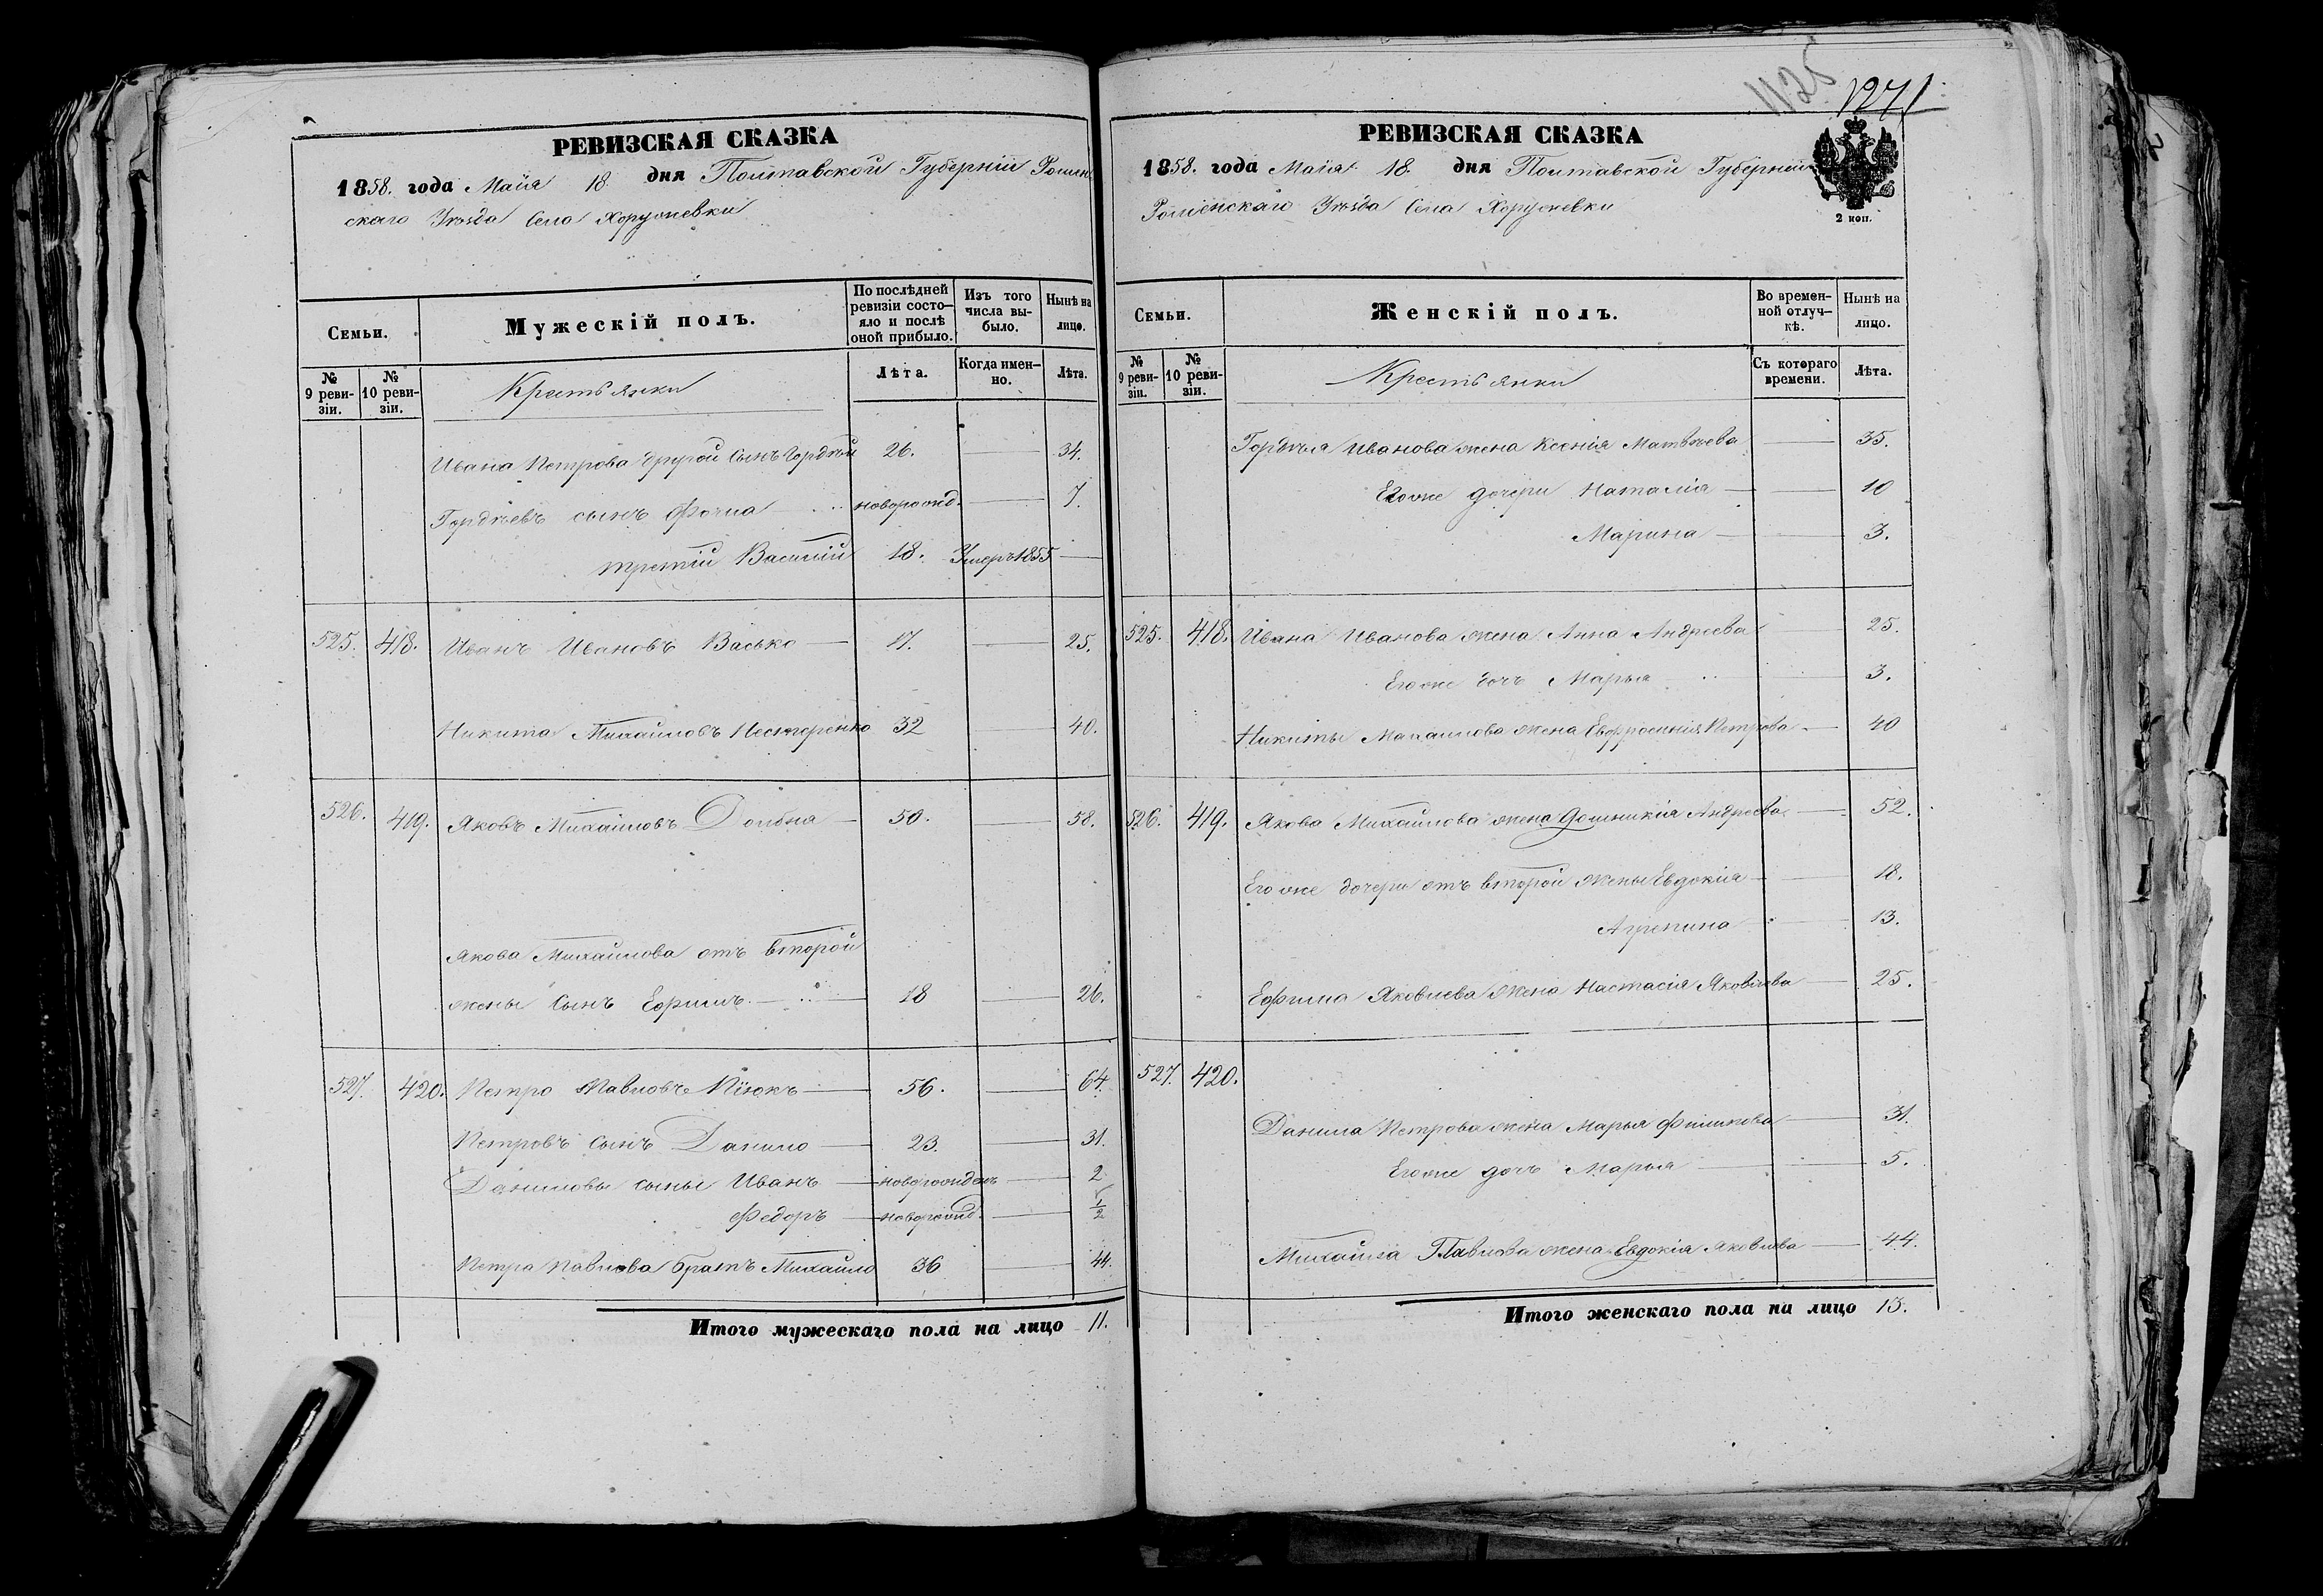 1125
1271
РЕВИЗСКАЯ СКАЗКА
1858. года Маія 18. дня Полтавской Губерніи Ромен
скаго Уѣзда Села Хоружевки
Семьи.
Мужескій полъ.
По послѣдней ревизіи состо-яло и послѣ оной прибыло.
Изъ того числа вы-было.
Нынѣ на лицо.
№ 9 реви-зіи.
№ 10 реви-зіи.
Крестьянки
Лѣта.
Когда имен-но.
Лѣта.
Ивана Петрова другой сынъ Гордѣй 26. 34.
Гордѣевъ сынъ Фома новорожд. 7.
третій Василій 18. Умеръ 1855
525. 418. Иванъ Ивановъ Васько 17. 25.
Никита Михайловъ Нестеренко 32 40.
526. 419. Яковъ Михайловъ 50. 58.
Якова Михайлова отъ второй
жены сынъ Ефимъ 18 26.
527. 420. Петро Павловъ 56. 64.
Петровъ сынъ Данило 23. 31.
Даниловы сыны Иванъ новорожденъ 2
Федоръ новорожд. 1/2
Петра Павлова братъ Михайло 36 44.
Итого мужескаго пола на лицо 11.
РЕВИЗСКАЯ СКАЗКА
1858. года Маія 18. дня Полтавской Губерніи
Роменскаго Уѣзда Села Хоружевки
2 коп.
Семьи.
Женскій полъ.
Во времен-ной отлуч-кѣ.
Нынѣ на лицо.
№ 9 реви-зіи.
№ 10 реви-зіи.
Крестьянки
Съ котораго времени.
Лѣта.
Гордѣя Иванова жена Ксенія Матвѣева 35.
Его же дочери Наталія 10
Марина 3.
525. 418. Ивана Иванова жена Анна Андреева 25.
Его же дочь Марья 3.
Никиты Михайлова жена Евфросинія Петрова 40
526. 419. Якова Михайлова жена Домникія Андреева 52.
Его же дочери отъ второй жены Евдокія 18.
Агрепина 13.
Ефима Яковлева жена Настасія Яковлева 25.
527. 420.
Данила Петрова жена Марья Филипова 31.
Его же дочь Марья 5.
Михайла Павлова жена Евдокія Яковлева 44.
Итого женскаго пола на лицо 13.